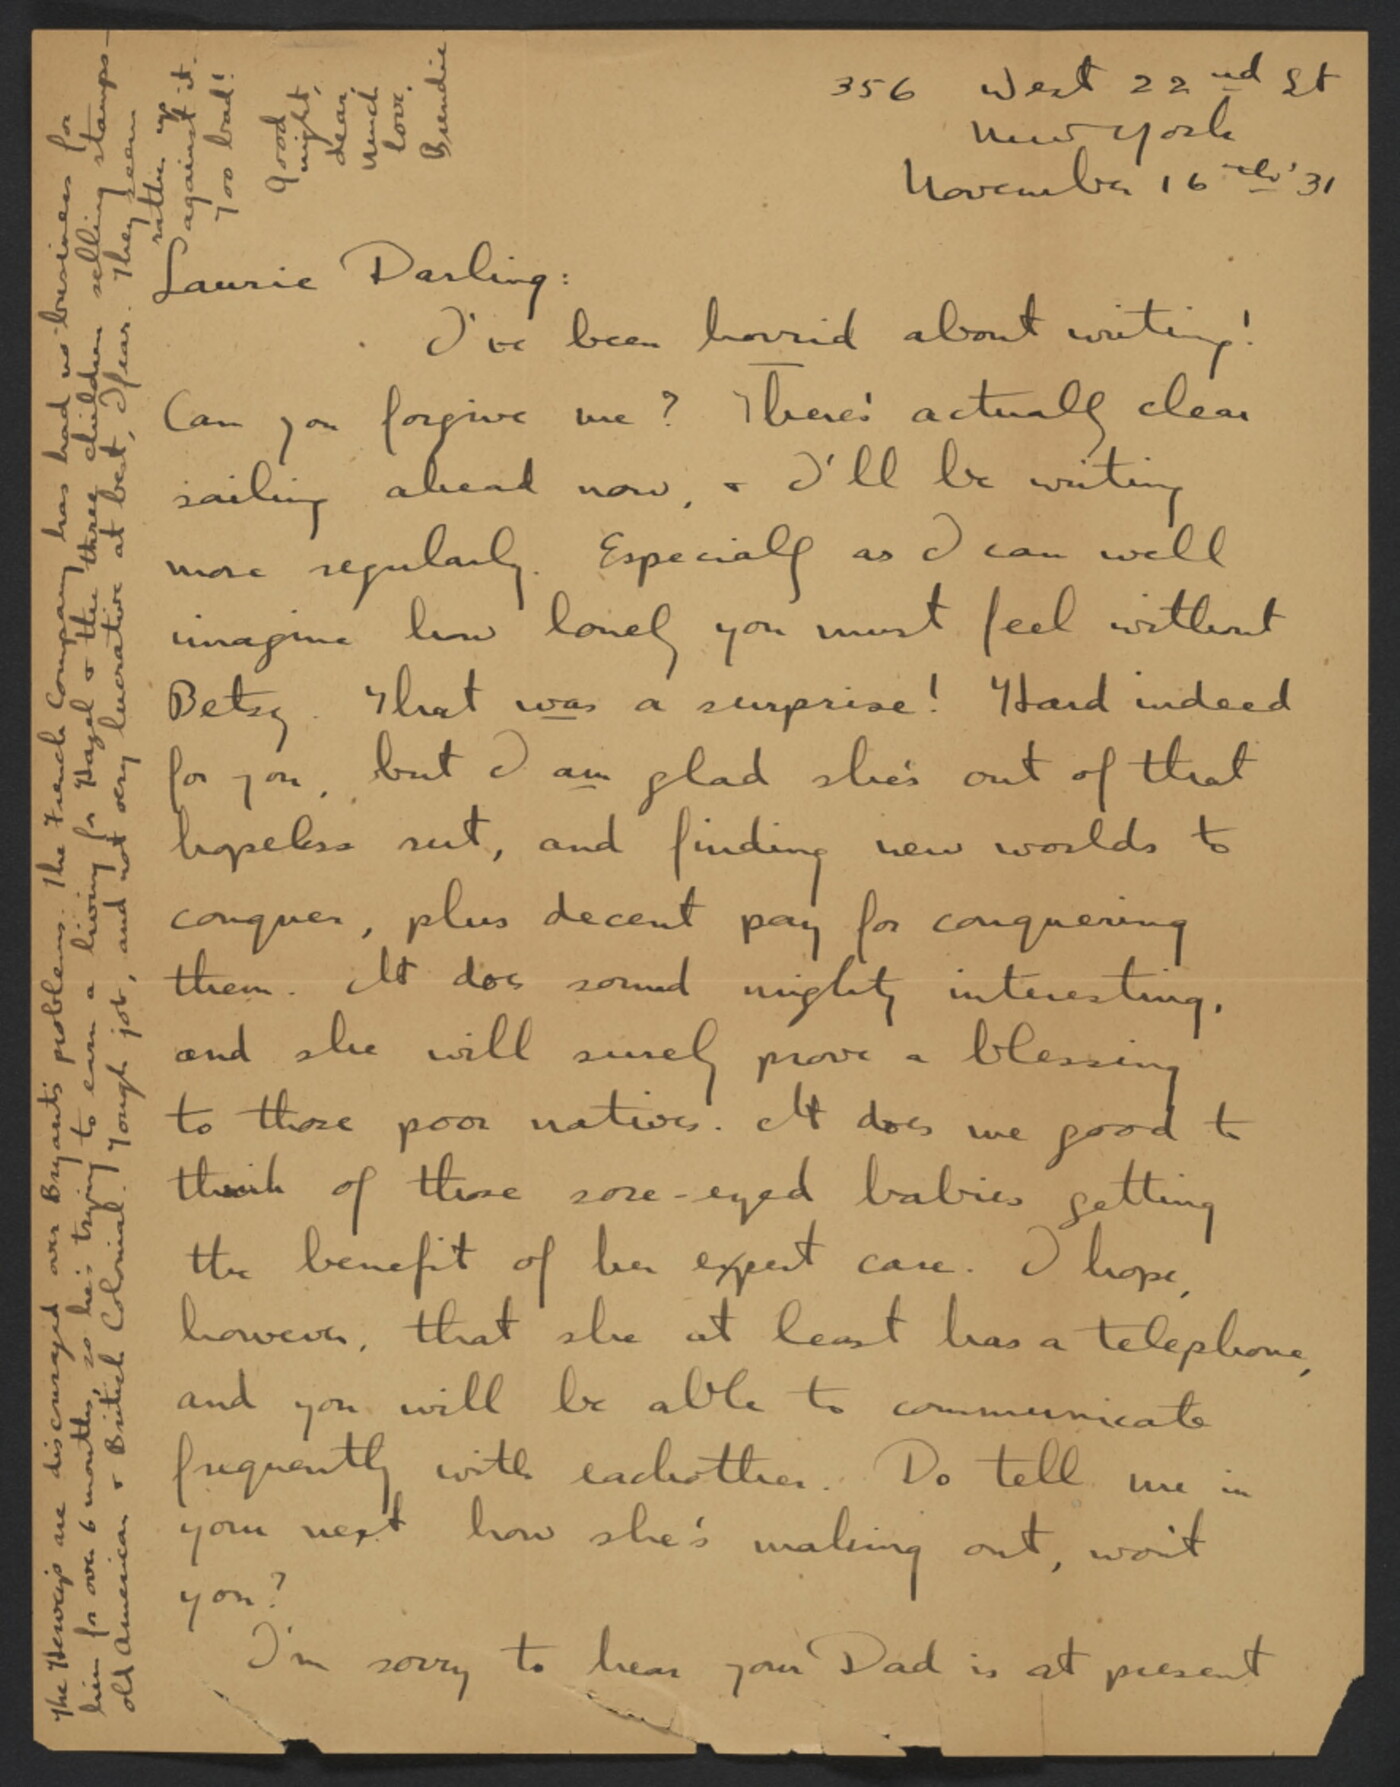 356 West 22nd St
New York
November 16th '31
Laurie Darling:
I've been horrid about writing!
Can you forgive me? There's actually clear
sailing ahead now, & I'll be writing
more regularly. Especially as I can well
imagine how lonely you must feel without
Betsy. That was a surprise! Hard indeed
for you, but I am glad she's out of that
hopeless rut, and finding new worlds to
conquer, plus decent pay for conquering
them. It does sound mighty interesting,
and she will surely prove a blessing
to those poor natives. It does me good to
think of those sore-eyed babies getting
the benefit of her expert care. I hope,
however, that she at least has a telephone,
and you will be able to communicate
frequently with eachother. Do tell me in
your next how she's making out, won't
you?
I'm sorry to hear your Dad is at present
The are discouraged over Bryant's problems. The French Company has had no business for
him for over 6 months, so he's trying to earn a living for Hazel & the three children selling stamps—
old American & British Colonial. Tough job, and not very lucrative at best, I fear. They seem
rather up
against it.
Too bad!
Good
night,
dear.
Much
love,
Brendie